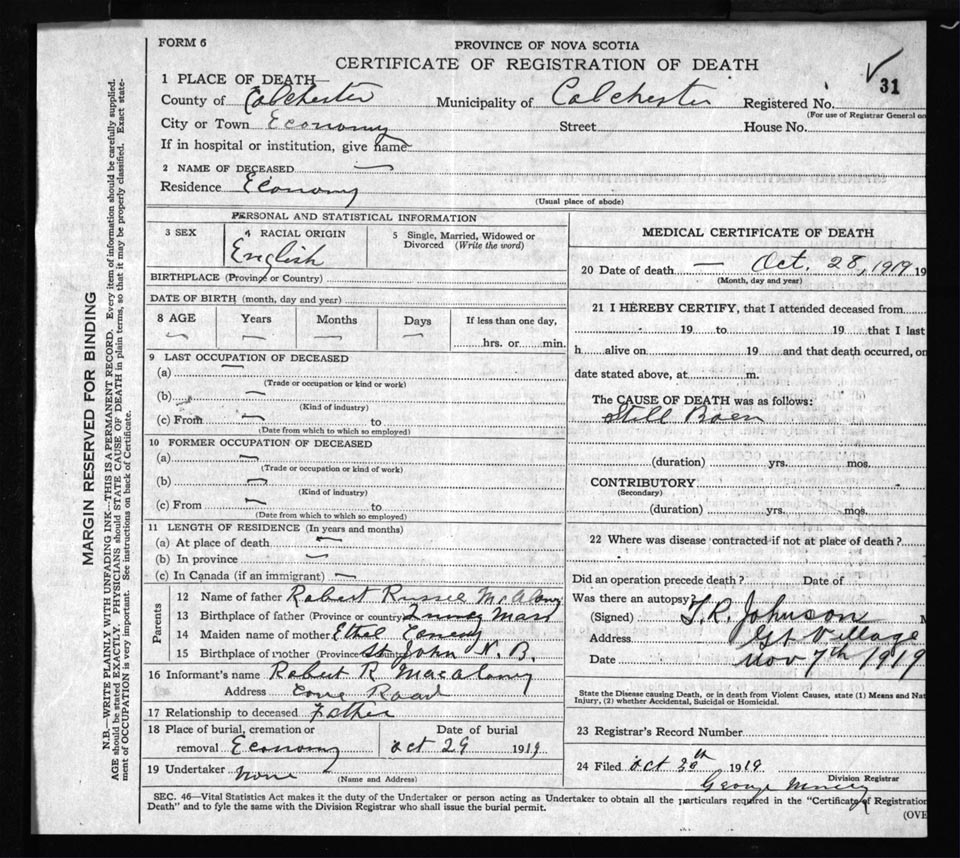 FORM 6
PROVINCE OF NOVA SCOTIA
CERTIFICATE OF REGISTRATION OF DEATH
31
1 PLACE OF DEATH—
County of Colchester Municipality of Colchester Registered No.
(For use of Registrar General on
City or Town Economy Street House No.
If in hospital or institution, give name
2 NAME OF DECEASED —
Residence Economy
(Usual place of abode)
MARGIN RESERVED FOR BINDING
N.B.—WRITE PLAINLY WITH UNFADING INK—THIS IS A PERMANENT RECORD. Every item of information should be carefully supplied.
AGE should be stated EXACTLY. PHYSICIANS should STATE CAUSE OF DEATH in plain terms, so that it may be properly classified. Exact state-
ment of OCCUPATION is very important. See instructions on back of Certificate.
PERSONAL AND STATISTICAL INFORMATION
3 SEX
4 RACIAL ORIGIN
English
5 Single, Married, Widowed or
Divorced (Write the word)
BIRTHPLACE (Province or Country)
DATE OF BIRTH (month, day and year)
8 AGE Years Months Days If less than one day,
— — — — hrs. or min.
9 LAST OCCUPATION OF DECEASED
(a) —
(Trade or occupation or kind or work)
(b) —
(Kind of industry)
(c) From — to
(Date from which to which so employed)
10 FORMER OCCUPATION OF DECEASED
(a) —
(Trade or occupation or kind of work)
(b) —
(Kind of industry)
(c) From — to
(Date from which to which so employed)
11 LENGTH OF RESIDENCE (In years and months)
(a) At place of death —
(b) In province —
(c) In Canada (if an immigrant) —
Parents
12 Name of father Robert Russel McAloney
13 Birthplace of father (Province or country) Quincy Mass
14 Maiden name of mother Ethel
15 Birthplace of mother (Province or Country) St John N. B.
16 Informant's name Robert R Macaloney
Address Road
17 Relationship to deceased Father
18 Place of burial, cremation or Date of burial
removal Economy Oct 29 1919
19 Undertaker None
(Name and Address)
MEDICAL CERTIFICATE OF DEATH
20 Date of death — Oct. 28, 1919 19
(Month, day and year)
21 I HEREBY CERTIFY, that I attended deceased from
19 to 19 that I last
h alive on 19 and that death occurred, on
date stated above, at m.
The CAUSE OF DEATH was as follows:
Still Born
(duration) yrs. mos.
CONTRIBUTORY
(Secondary)
(duration) yrs. mos.
22 Where was disease contracted if not at place of death?
Did an operation precede death? Date of
Was there an autopsy?
(Signed) T. R. Johnson M
Address Gt Village
Date Nov 7th 1919
State the Disease causing Death, or in death from Violent Causes, state (1) Means and Nat
Injury, (2) whether Accidental, Suicidal or Homicidal.
23 Registrar's Record Number
24 Filed Oct 30th 1919
Division Registrar
George
SEC. 46—Vital Statistics Act makes it the duty of the Undertaker or person acting as Undertaker to obtain all the particulars required in the "Certificate of Registration
Death" and to fyle the same with the Division Registrar who shall issue the burial permit.
(OVE